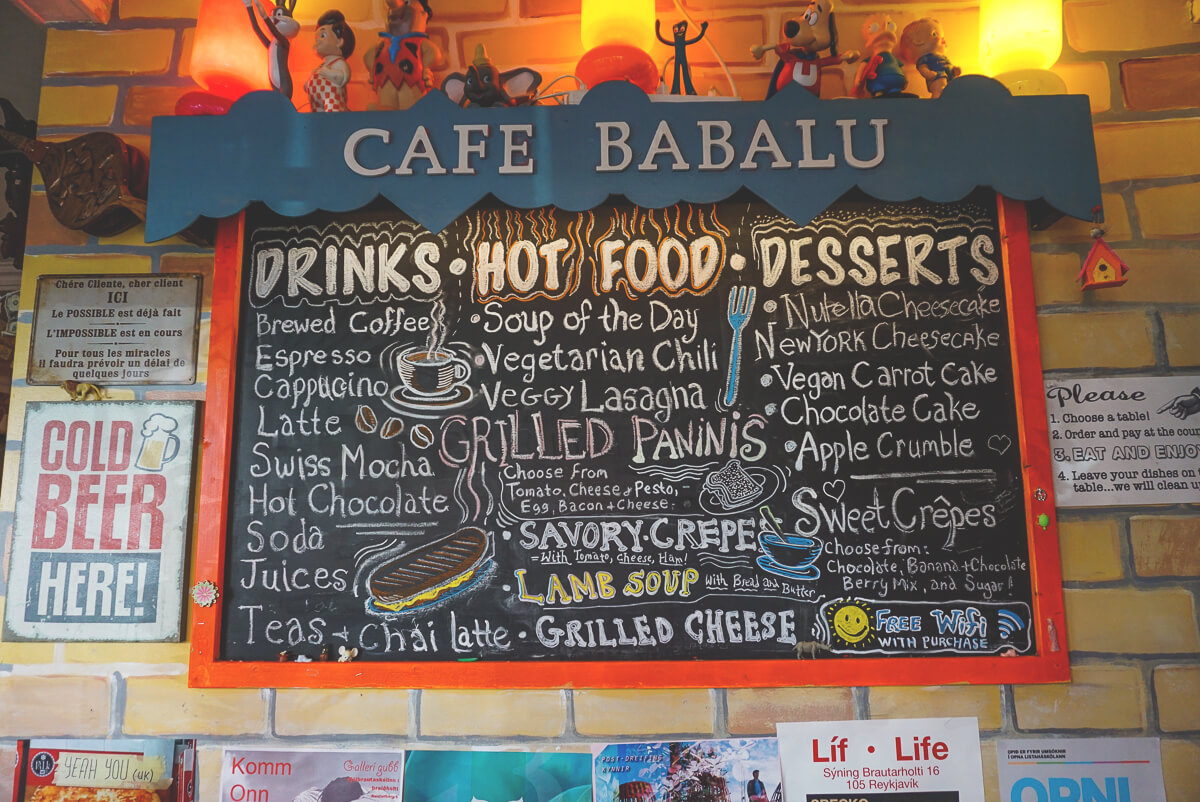 CAFE BABALU
DRINKS · HOT FOOD · DESSERTS
Brewed Coffee
Espresso
Cappucino
Latte
Swiss Mocha
Hot Chocolate
Soda
Juices
Teas + Chai Latte
· Soup of the Day
· Vegetarian Chili
· Veggy Lasagna
GRILLED PANINIS
Choose From
Tomato, Cheese + Pesto,
Egg, Bacon + Cheese.
· SAVORY · CREPE
= With Tomato, Cheese, Ham!
· LAMB SOUP With Bread and Butter
· GRILLED CHEESE
· Nutella Cheesecake
NewYORK Cheesecake
· Vegan Carrot Cake
Chocolate Cake
· Apple Crumble
Sweet Crêpes
Choose from:
Chocolate, Banana + Chocolate
Berry Mix, and Sugar!
FREE WiFi
WITH PURCHASE
Chére Cliente, cher client
ICI
Le POSSIBLE est déjà fait
L'IMPOSSIBLE est en cours
Pour tous les miracles
il faudra prévoir un délai de
quelques jours
COLD
BEER
HERE!
Please
1. Choose a table!
2. Order and pay at the
3. EAT AND ENJOY
4. Leave your dishes on
table...we will clean
YEAH YOU (UK)
Komm
Onn
Galleri gubb
POST-DREIFING
KYNNIR
Líf · Life
Sýning Brautarholti 16
105 Reykjavík
OPIÐ ER FYRIR UMSÓKNIR
Í OPNA LISTAHÁSKÓLANN
OPNI